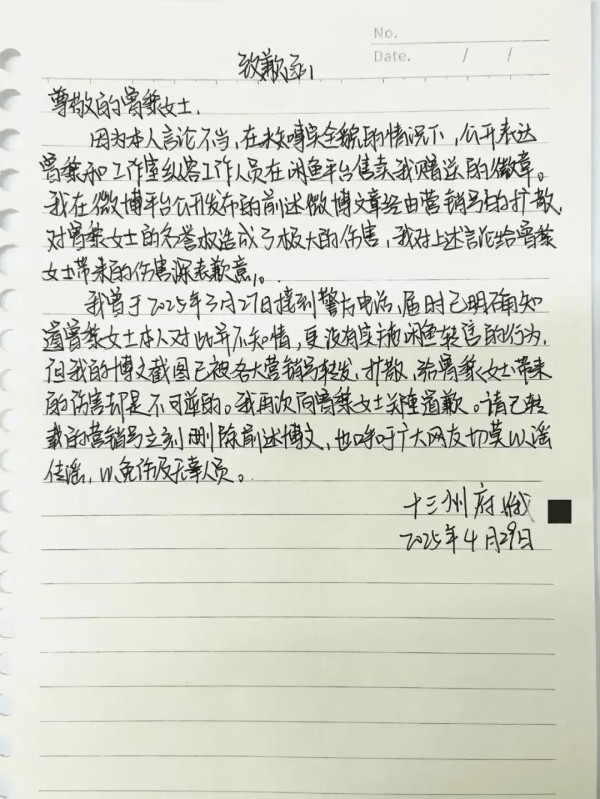 No.
Date. / /
致歉函
尊敬的曾黎女士:
因为本人言论不当,在未知事实全貌的情况下,公开表达
曾黎和工作室纵容工作人员在闲鱼平台售卖我赠送的徽章。
我在微博平台公开发布的前述微博文章经由营销号的扩散,
对曾黎女士的名誉权造成了极大的伤害,我对上述言论给曾黎
女士带来的伤害深表歉意。
我曾于2025年3月27日接到警方电话,届时已明确知
道曾黎女士本人对此并不知情,更没有实施闲鱼转售的行为,
但我的博文截图已被各大营销号转发,扩散,给曾黎女士带来
的伤害却是不可逆的。我再次向曾黎女士郑重道歉。请已转
载的营销号立刻删除前述博文,也呼吁广大网友切莫以谣
传谣,以免伤及无辜人员。
十三州府
2025年4月29日